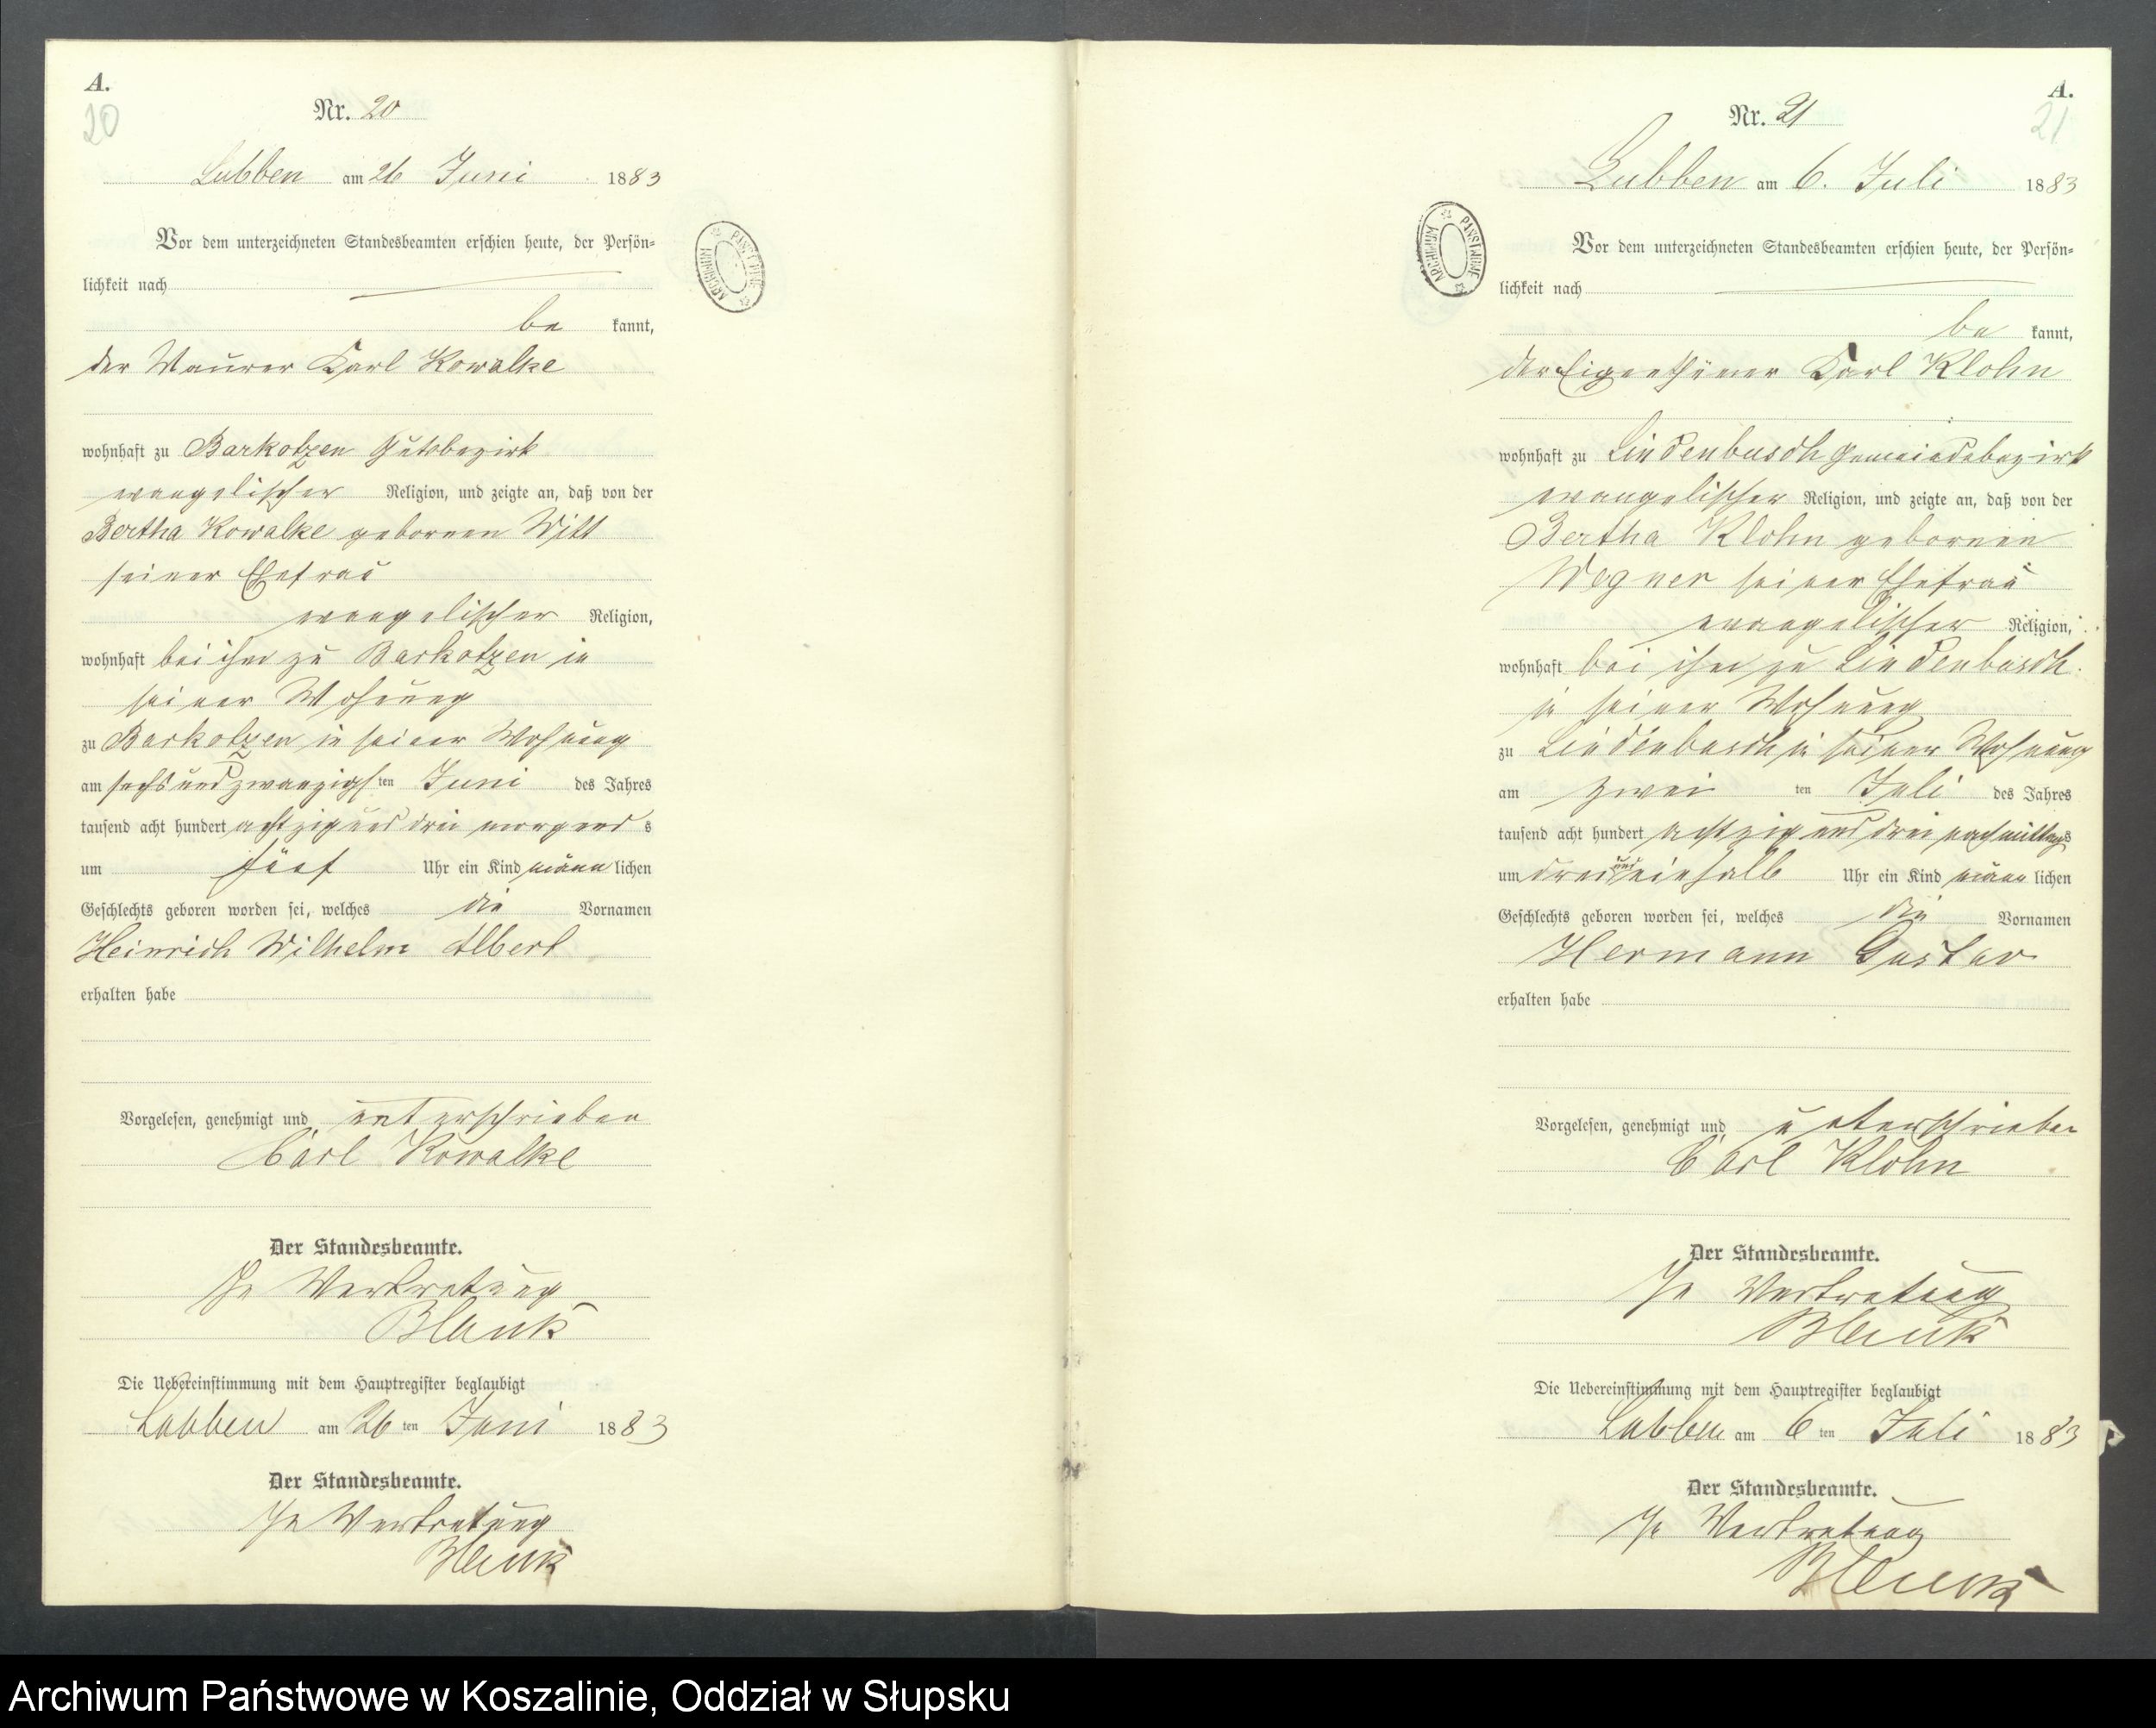 A.
20
Nr. 20
Lubben am 26 Juni 1883
Vor dem unterzeichneten Standesbeamten erschien heute, der Persön=
lichkeit nach
be kannt,
der Maurer Karl Kowalke
wohnhaft zu Barkotzen Gutsbezirk
evangelischer Religion, und zeigte an, daß von der
Bertha Kowalke gebornen Witt
seiner Ehefrau
evangelischer Religion,
wohnhaft bei ihm zu Barkotzen in
seiner Wohnung
zu Barkotzen in seiner Wohnung
am sechsundzwanzigsten Juni des Jahres
tausend acht hundert achtzig und drei morgends
um fünf Uhr ein Kind männlichen
Geschlechts geboren worden sei, welches die Vornamen
Heinrich Wilhelm Albert
erhalten habe
Vorgelesen, genehmigt und unterschrieben
Carl Kowalke
Der Standesbeamte.
In Vertretung
Blank
Die Uebereinstimmung mit dem Hauptregister beglaubigt
Lubben am 26 ten Juni 1883
Der Standesbeamte.
In Vertretung
Blank
ARCHIWUM PAŃSTWOWE
A.
21
Nr. 21
Lubben am 6. Juli 1883
Vor dem unterzeichneten Standesbeamten erschien heute, der Persön=
lichkeit nach
be kannt,
der Eigenthümer Karl Klohn
wohnhaft zu Lindenbusch Gemeindebezirk
evangelischer Religion, und zeigte an, daß von der
Bertha Klohn gebornen
Wegner seiner Ehefrau
evangelischer Religion,
wohnhaft bei ihm zu Lindenbusch
in seiner Wohnung
zu Lindenbusch in seiner Wohnung
am zwei ten Juli des Jahres
tausend acht hundert achtzig und drei nachmittags
um drei und einhalb Uhr ein Kind männlichen
Geschlechts geboren worden sei, welches die Vornamen
Hermann Gustav
erhalten habe
Vorgelesen, genehmigt und unterschrieben
Carl Klohn
Der Standesbeamte.
In Vertretung
Blank
Die Uebereinstimmung mit dem Hauptregister beglaubigt
Lubben am 6 ten Juli 1883
Der Standesbeamte.
In Vertretung
Blank
ARCHIWUM PAŃSTWOWE
Archiwum Państwowe w Koszalinie, Oddział w Słupsku